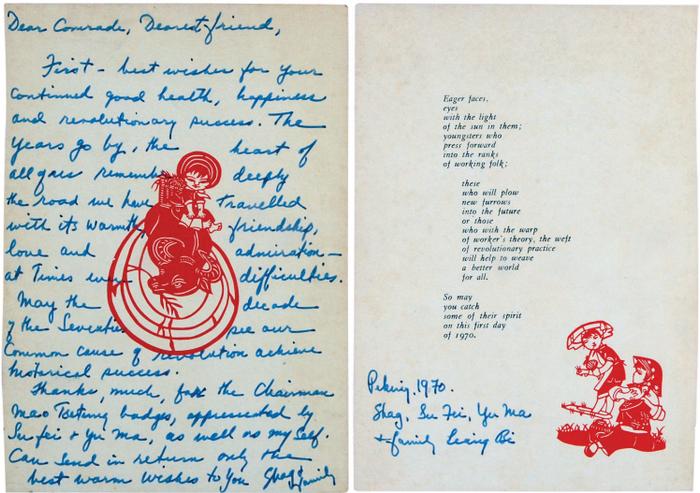 Dear Comrade, Dearest friend,
First - best wishes for your
continued good health, happiness
and revolutionary success. The
years go by, the heart of
all of us remember deeply
the road we have travelled
with its warmth, friendship,
love and admiration -
at Times difficulties.
May the decade
of the Seventies see our
Common cause of revolution achieve
historical success.
Thanks, much, for the Chairman
Mao Tsetung badges, appreciated by
Su fei + Yu Ma, as well as my self.
Can send in return only the
best warm wishes to You Shag + family
Eager faces,
eyes
with the light
of the sun in them;
youngsters who
press forward
into the ranks
of working folk;
these
who will plow
new furrows
into the future
or those
who with the warp
of worker's theory, the weft
of revolutionary practice
will help to weave
a better world
for all.
So may
you catch
some of their spirit
on this first day
of 1970.
Peking, 1970.
Shag, Su Fei, Yu Ma
+ family Liang Bi